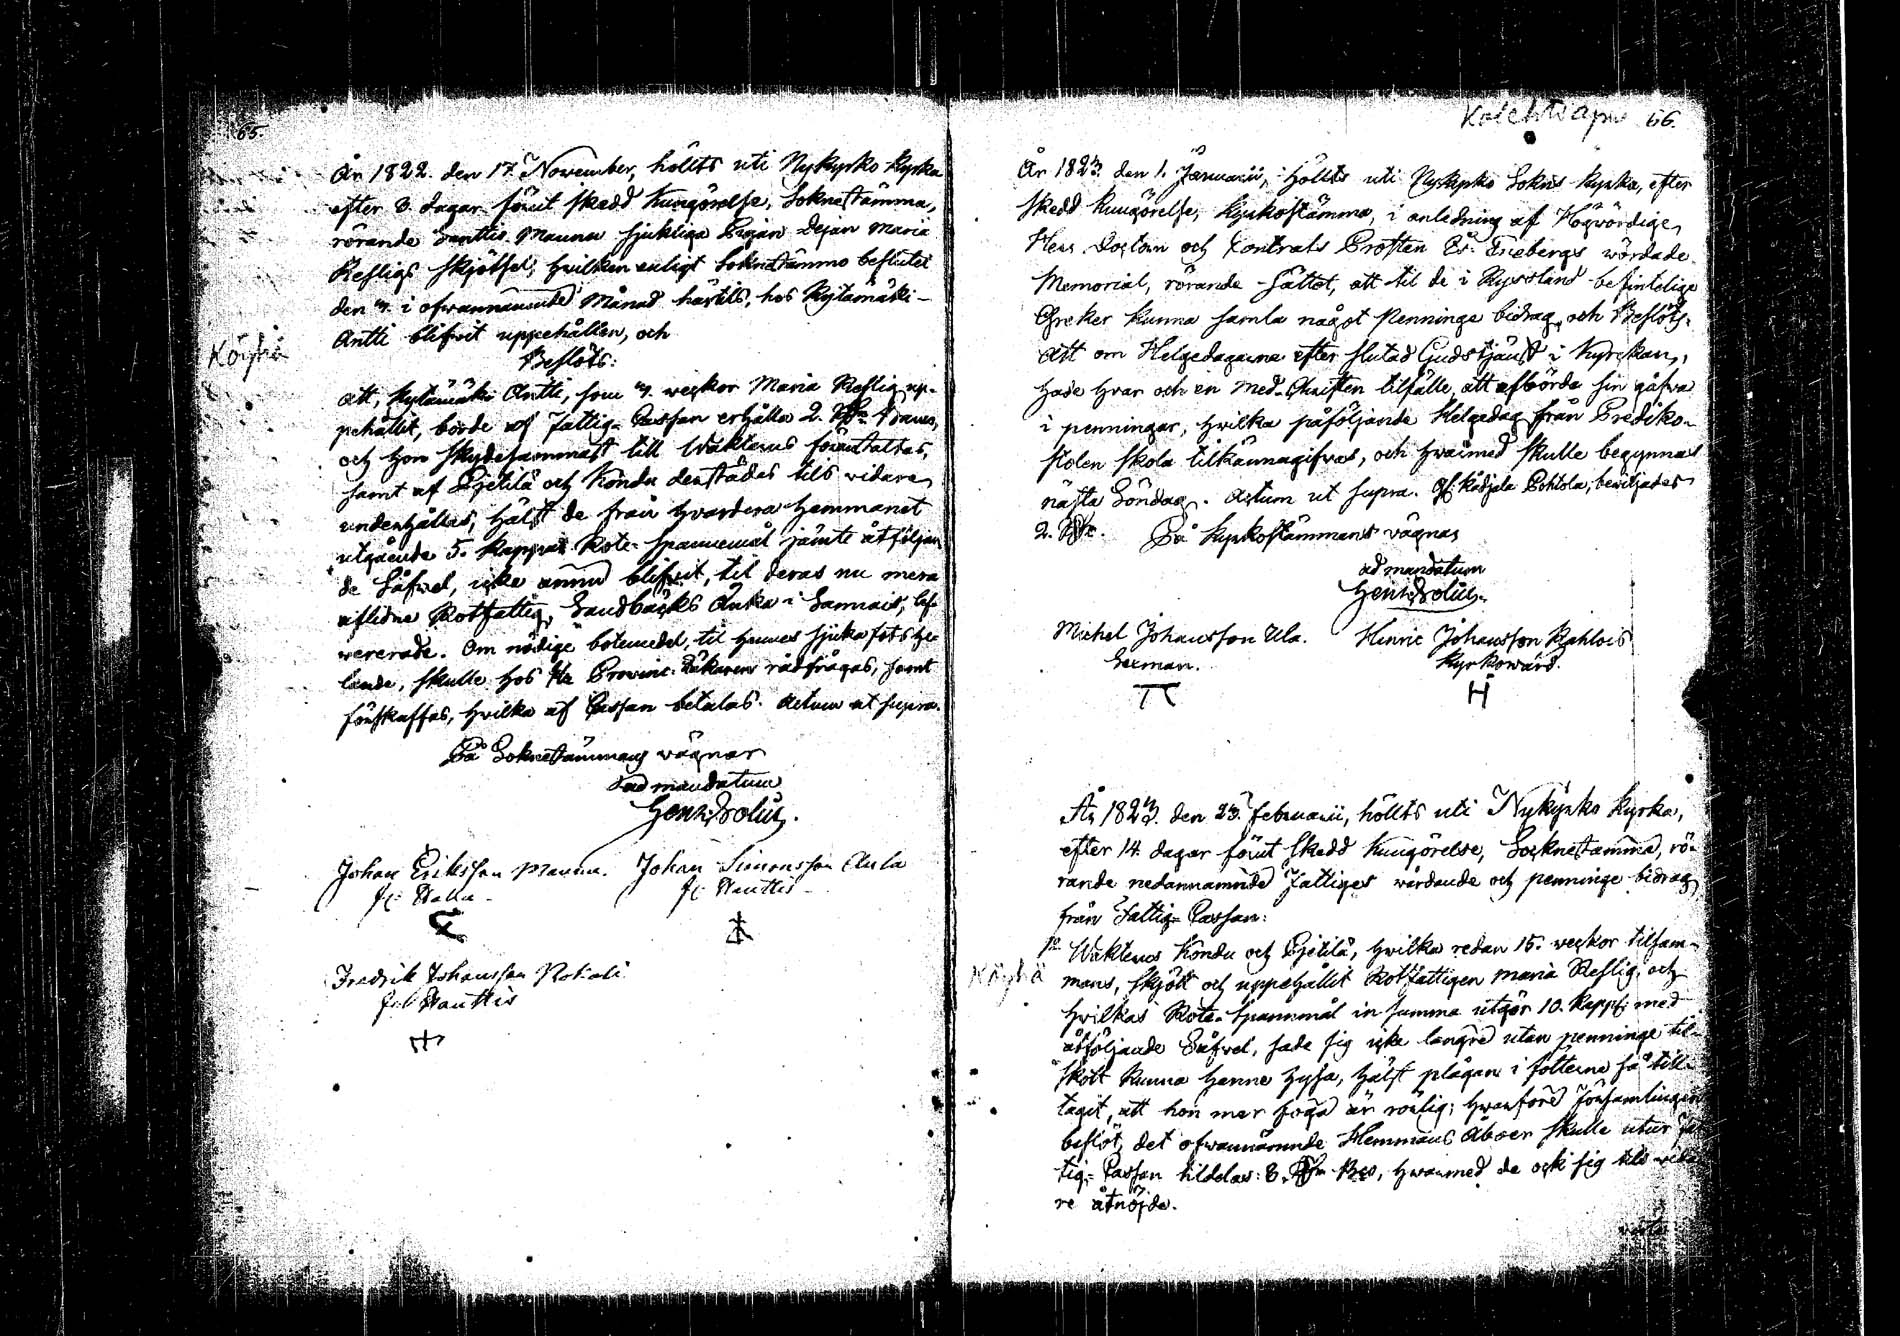 65.
År 1822. den 17. November, höllts uti Nykyrko Kyrka
efter 8. dagar förut skedd Kungörelse, Soknestämma,
rörande Manna sjukliga Pigan Dejan Maria
Resligs skjötsel, hvilken enligt Soknestämmo beslutet
den 4. i ofwannämnde Månad härtils, hos Kytämäki-
Antti blifvit uppehållen, och
Köyhä
Beslöts:
att, Kytämäki Antti, som 4. weckor Maria Reslig up-
pehållit, borde af Fattig-Cassan erhålla 2.
och hon skyndesammast till Waktenus förwaltas,
samt af Pjetilä och Kondu derstädes tils widare
underhållas, hälst de från hvardera hemmanet
utgående 5. kappar Rote-spannemål jämte åtföljan
de Såfvel, icke ännu blifvit, til deras nu mera
aflidne Rotfattig, Sandbäcks Änka i Sannais, lef-
wererade. Om nödige botemedel, til hennes sjuka fots he-
lande, skulle hos Provinc. Läkaren rådfrågas, samt
förskaffas, hvilka af Cassan betalas. Actum ut supra.
På Soknestämmans vägnar
ad mandatum
Johan Eriksson Manna. Johan Simonsson Anla
Fredrik Johansson
66.
År 1823. den 1. Januarii, höllts uti Nykyrko Sokns kyrka, efter
skedd kungörelse, kyrkostämma, i anledning af Högvördige
Herr Doctorn och Contracts Prosten wördade
Memorial, rörande sättet, att til de i Ryssland befintelige
Greker kunna samla något Penninge bidrag, och Beslöts,
att om Helgedagarna efter slutad Gudstjänst i Kyrckan,
hade hvar och en Med-Christen tilfälle, att afbörda sin gåfva
i penningar, hvilka påföljande Helgedag från Prediko-
stolen skola tilkännagifvas, och hvarmed skulle begynnas
nästa Söndag. Actum ut supra. Pohtola, beviljades
2. På Kyrkostämmans vägnar
ad mandatum
Michel Johansson Ula. Hinric Johansson Rahlois
Sexman. Kyrkowärd.
År 1823. den 23. Februarii, höllts uti Nykyrko Kyrka,
efter 14. dagar förut skedd Kungörelse, Socknestämma, rö-
rande nedannämnde Fattiges wårdande och penninge bidrag
från Fattig-Cassan:
Waktenus Kondu och Pjetilä, hvilka redan 15. weckor tilsam-
Köyhä
mans, skjött och uppehållit Rotfattigen Maria Reslig, och
hvilkas Rote-Spannmål in summa utgör 10. kappf. med
åtföljande Såfvel, sade sig icke längre utan penninge til-
skott kunna henne hysa, hälst plågan i fötterna så till-
tagit, att hon mer föga är rörlig; hwarföre Församlingen
beslöt, det ofwannämnde Hemmans Åboer skulle utur Fat
tig-Cassan tildelas: 8. hwarmed de ock sig tils wida
re åtnöjde.